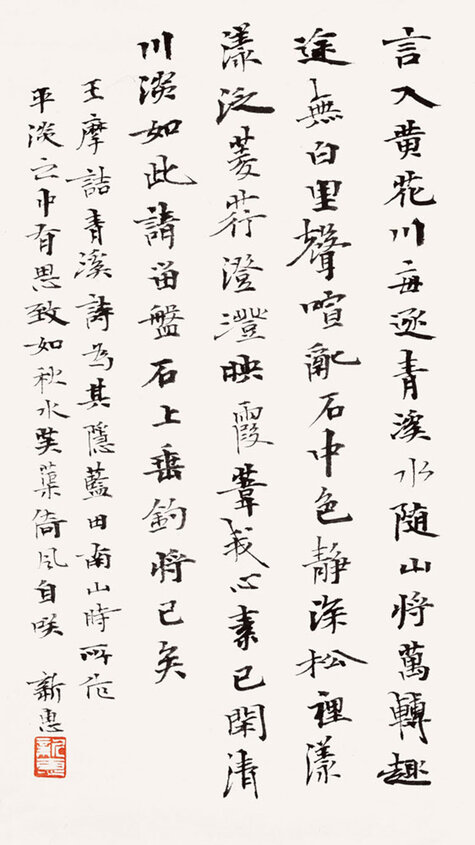 言入黄花川每逐青溪水随山将萬轉趣
途無百里聲喧亂石中色靜深松裡漾
漾泛菱荇澄澄映霞葦我心素已閑清
川淡如此請留盤石上垂釣將已矣
王摩詰青溪詩為其隱藍田南山時所作
平淡之中有思致如秋水芙蕖倚風自咲 新惠
新惠